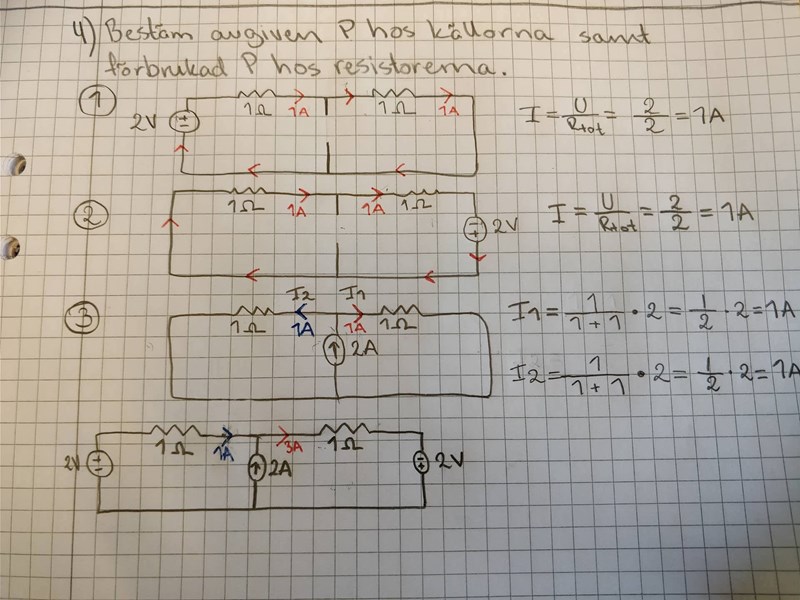 4) Bestäm avgiven P hos källorna samt
förbrukad P hos resistorerna.
1
2V
1Ω
1A
1Ω
1A
I = U/Rtot = 2/2 = 1A
2
1Ω
1A
1A
1Ω
2V
I = U/Rtot = 2/2 = 1A
3
I2
I1
1Ω
1A
1A
1Ω
2A
I1 = 1/1+1 • 2 = 1/2 · 2 = 1A
I2 = 1/1+1 • 2 = 1/2 · 2 = 1A
2V
1Ω
1A
3A
1Ω
2A
2V